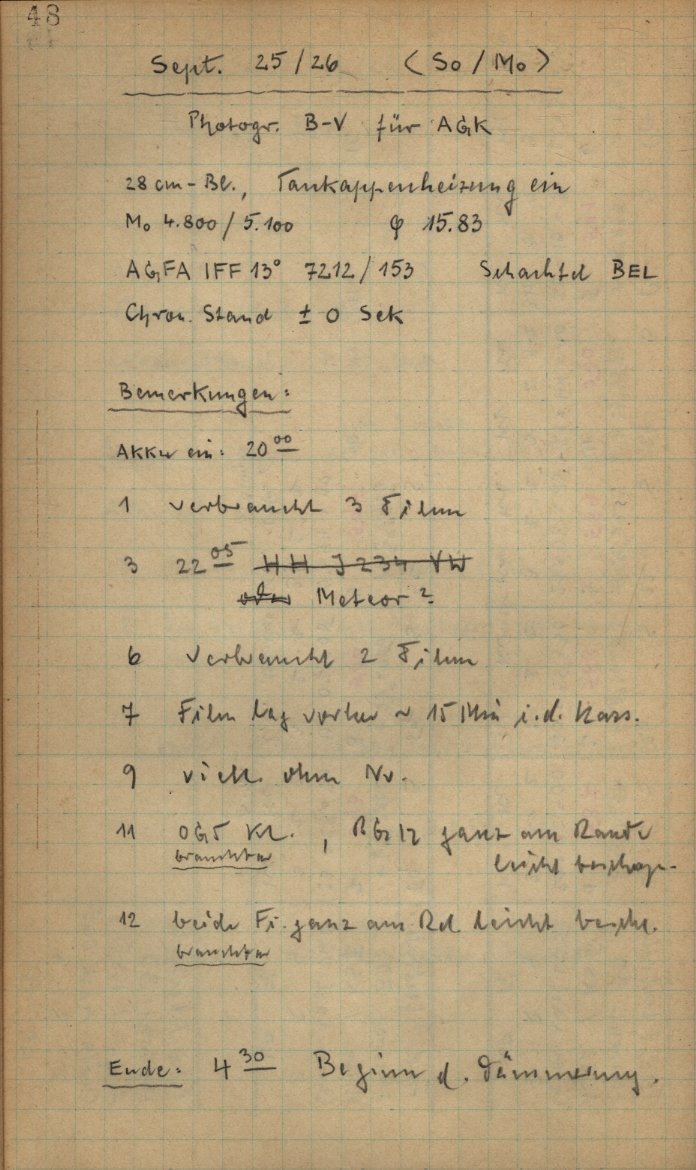 48
Sept. 25/26 (So/Mo)
Photogr. B-V für AGK
28 cm-Bl., Taukappenheizung ein
Mo 4.800/5.100 φ 15.83
AGFA IFF 13° 7212/153 Schachtel BEL
Chron. Stand ± 0 Sek
Bemerkungen:
Akku ein: 20 00
1 verbraucht 3 Filme
3 22 05 HH J 234 VW
oder Meteor?
6 verbraucht 2 Filme
7 Film lag vorher ~ 15 Min i.d. Kass.
9 viell. ohne Nr.
11 OG5 Kr. , RG12 ganz am Rande
brauchbar leicht beschlag-
12 beide Fi. ganz am Rd. leicht beschl.
brauchbar
Ende: 4 30 Beginn d. Dämmerung.